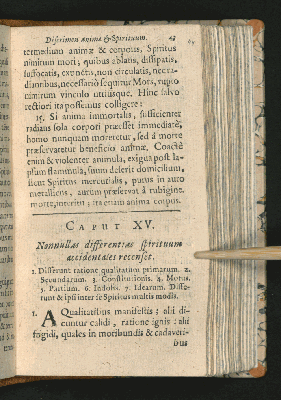 Discrimen Animæ & Spirituum. 43
termedium animæ & corporis, Spiritus
nimirum moti; quibus ablatis, dissipatis,
suffocatis, exunctis, non circulatis, nec ra-
diantibus, necessariò sequitur Mors, rupto
nimirum vinculo utriusque. Hinc salvo
rectiori ita possemus colligere:
15. Si anima immortalis, sufficienter
radians sola corpori præesset immediatè,
homo nunquam moreretur, sed à morte
præservaretur beneficio animæ. Coactè
enim & violenter animula, exigua post la-
psum flammula, suum deserit domicilium,
sicut Spiritus mercurialis, purus in auro
metallicus, aurum præservat à rubigine,
morte, interitu; ita etiam anima corpus.
CAPUT XV.
Nonnullas differentias spirituum
accidentales recenset.
1. Different ratione qualitatum primarum. 2.
Secundarum. 3. Constitutionis. 4. Motus.
5. Partium. 6. Indolis. 7. Idearum. Diffe-
runt & ipsi inter se Spiritus multis modis.
1. A Qualitatibus manifestis; alii di-
cuntur calidi, ratione ignis: alii
frigidi, quales in moribundis & cadaveri-
bus